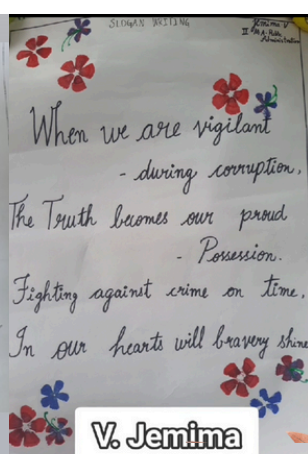 SLOGAN WRITING
Jemima V
II M.A. Pub.
Administration
When we are vigilant
- during corruption,
The Truth becomes our proud
- Possession.
Fighting against crime on time,
In our hearts will bravery shine
V. Jemima